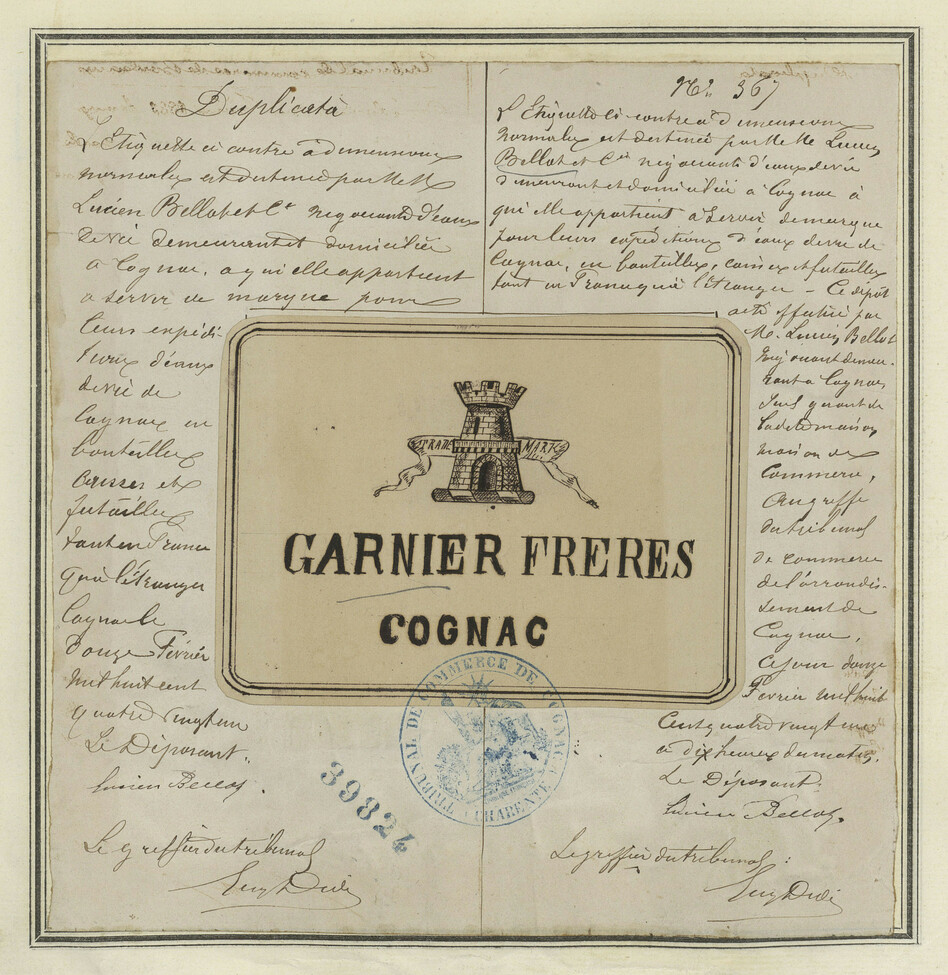 Duplicata
L'Etiquette ci contre à dimensions
normales est destinée par MM
Lucien Bellot et Cie négociants d'eaux
de vie demeurant et domiciliés
à Cognac, à qui elle appartient
à servir de marque pour
leurs expédi-
tions d'eaux
de vie de
Cognac en
bouteilles
caisses et
futailles
tant en France
qu'à l'étranger
Cognac le
Douze Février
mil huit cent
quatre vingt un
Le Déposant.
Lucien Bellot.
Le greffier du tribunal
No 367
L'Etiquette ci-contre à dimensions
normales est destinée par MM Lucien
Bellot et Cie négociants d'eaux de vie
demeurant et domiciliés à Cognac à
qui elle appartient à servir de marque
pour leurs expéditions d'eaux de vie de
Cognac, en bouteilles, caisses et futailles
tant en France qu'à l'étranger - Ce dépôt
a été effectué par
M. Lucien Bellot
négociant demeu-
rant à Cognac
seul gérant de
la dite maison
maison de
Commerce,
au greffe
du tribunal
de commerce
de l'arrondis-
sement de
Cognac,
ce jour douze
Février mil huit
cent quatre vingt un
à dix heures du matin.
Le Déposant.
Lucien Bellot.
Le greffier du tribunal:
TRADE MARK
GARNIER FRERES
COGNAC
TRIBUNAL DE COMMERCE DE COGNAC
CHARENTE
39824